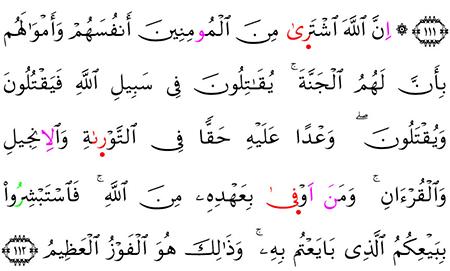 ﴿١١١﴾ ۞ اِنَّ ٱللَّهَ ٱشْتَرِىٰ مِنَ ٱلْمُومِنِينَ أَنفُسَهُمْ وَأَمْوَٰلَهُم
بِأَنَّ لَهُمُ ٱلْجَنَّةَ ۚ يُقَٰتِلُونَ فِى سَبِيلِ ٱللَّهِ فَيَقْتُلُونَ
وَيُقْتَلُونَ ۖ وَعْدًا عَلَيْهِ حَقًّا فِى ٱلتَّوْرِىٰةِ وَٱلِانجِيلِ
وَٱلْقُرْءَانِ ۚ وَمَنَ اَوْفِىٰ بِعَهْدِهِۦ مِنَ ٱللَّهِ ۚ فَٱسْتَبْشِرُوا۟
بِبَيْعِكُمُ ٱلَّذِى بَايَعْتُم بِهِۦ ۚ وَذَٰلِكَ هُوَ ٱلْفَوْزُ ٱلْعَظِيمُ ﴿١١٢﴾